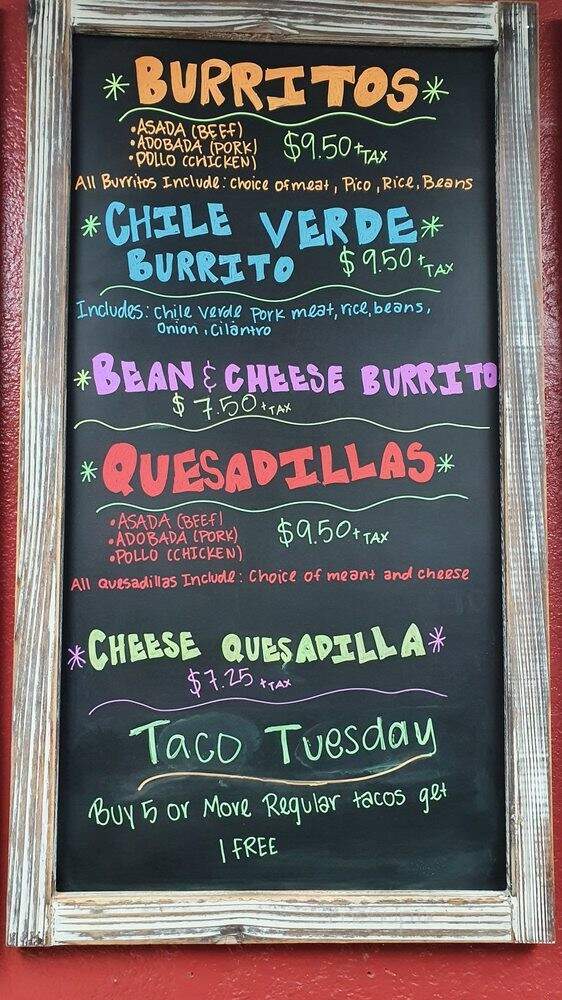 *BURRITOS*
•ASADA (BEEF)
•ADOBADA (PORK) $9.50+TAX
•POLLO (CHICKEN)
All Burritos Include: choice of meat, Pico, Rice, Beans
*CHILE VERDE*
BURRITO $9.50+TAX
Includes: Chile Verde Pork meat, rice, beans,
Onion, Cilantro
*BEAN & CHEESE BURRITO
$7.50+TAX
*QUESADILLAS*
•ASADA (BEEF)
•ADOBADA (PORK) $9.50+TAX
•POLLO (CHICKEN)
All Quesadillas Include: Choice of meant and cheese
*CHEESE QUESADILLA*
$7.25+TAX
Taco Tuesday
Buy 5 or More Regular tacos get
1 FREE